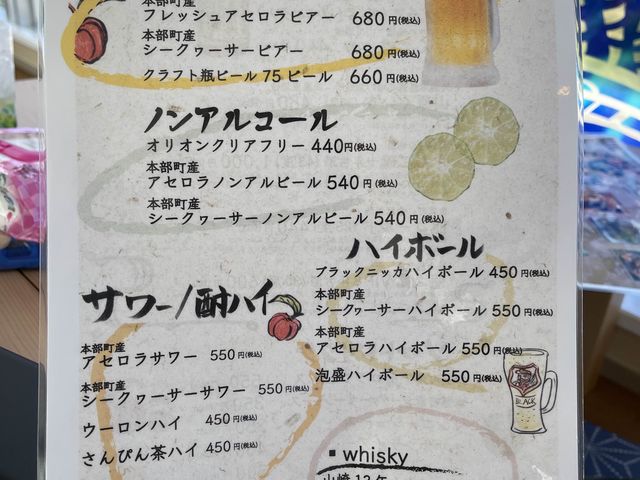 本部町産
フレッシュアセロラビアー 680円(税込)
本部町産
シークヮーサービアー 680円(税込)
クラフト瓶ビール75ビール 660円(税込)
ノンアルコール
オリオンクリアフリー 440円(税込)
本部町産
アセロラノンアルビール 540円(税込)
本部町産
シークヮーサーノンアルビール 540円(税込)
ハイボール
ブラックニッカハイボール 450円(税込)
本部町産
シークヮーサーハイボール 550円(税込)
本部町産
アセロラハイボール 550円(税込)
泡盛ハイボール 550円(税込)
BLACK
サワー/酎ハイ
本部町産
アセロラサワー 550円(税込)
本部町産
シークヮーサーサワー 550円(税込)
ウーロンハイ 450円(税込)
さんぴん茶ハイ 450円(税込)
▪ whisky
山崎12ケ